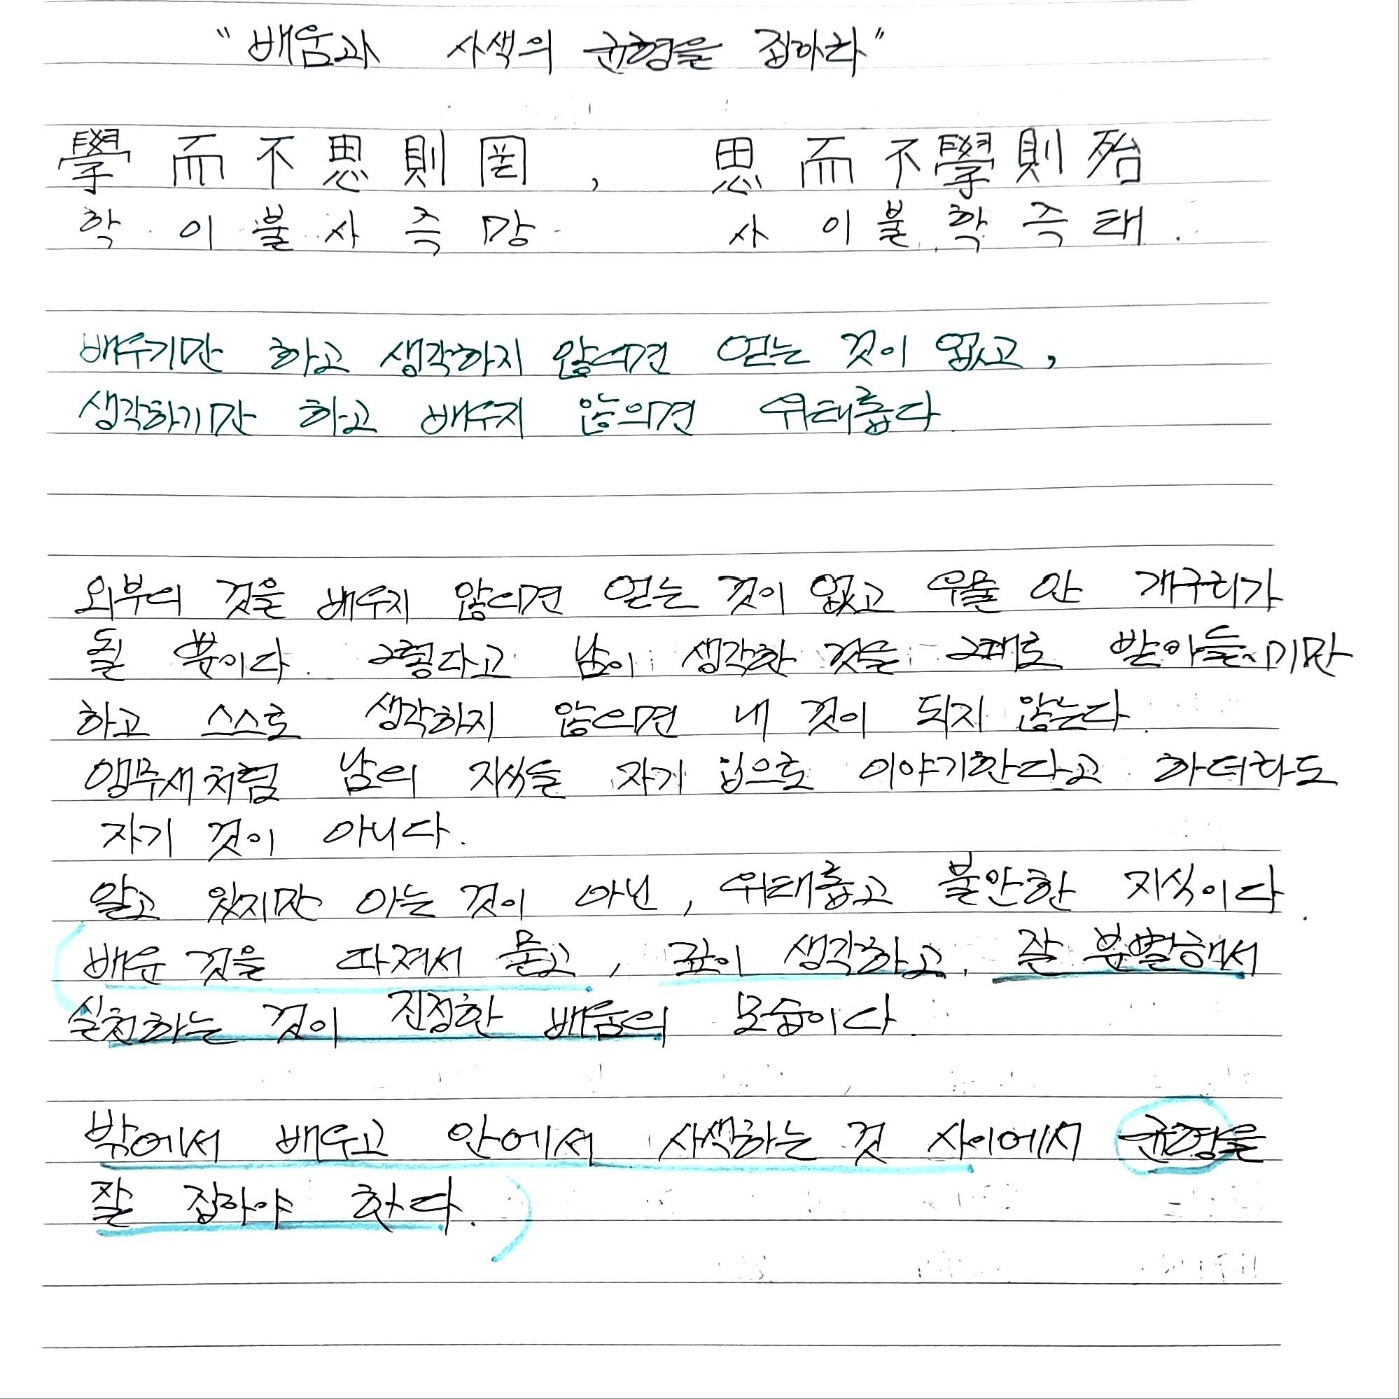 "배움과 사색의 균형을 잡아라"
學而不思則罔, 思而不學則殆
학이불사즉망 사이불학즉태.
배우기만 하고 생각하지 않으면 얻는 것이 없고,
생각하기만 하고 배우지 않으면 위태롭다.
외부의 것을 배우지 않으면 얻는 것이 없고 우물 안 개구리가
될 뿐이다. 그렇다고 남이 생각한 것을 그대로 받아들이기만
하고 스스로 생각하지 않으면 내 것이 되지 않는다.
앵무새처럼 남의 지식을 자기 입으로 이야기한다고 하더라도
자기 것이 아니다.
알고 있지만 아는 것이 아닌, 위태롭고 불안한 지식이다.
배운 것을 따져서 묻고, 깊이 생각하고, 잘 분별해서
실천하는 것이 진정한 배움의 모습이다.
밖에서 배우고 안에서 사색하는 것 사이에서 균형을
잘 잡아야 한다.